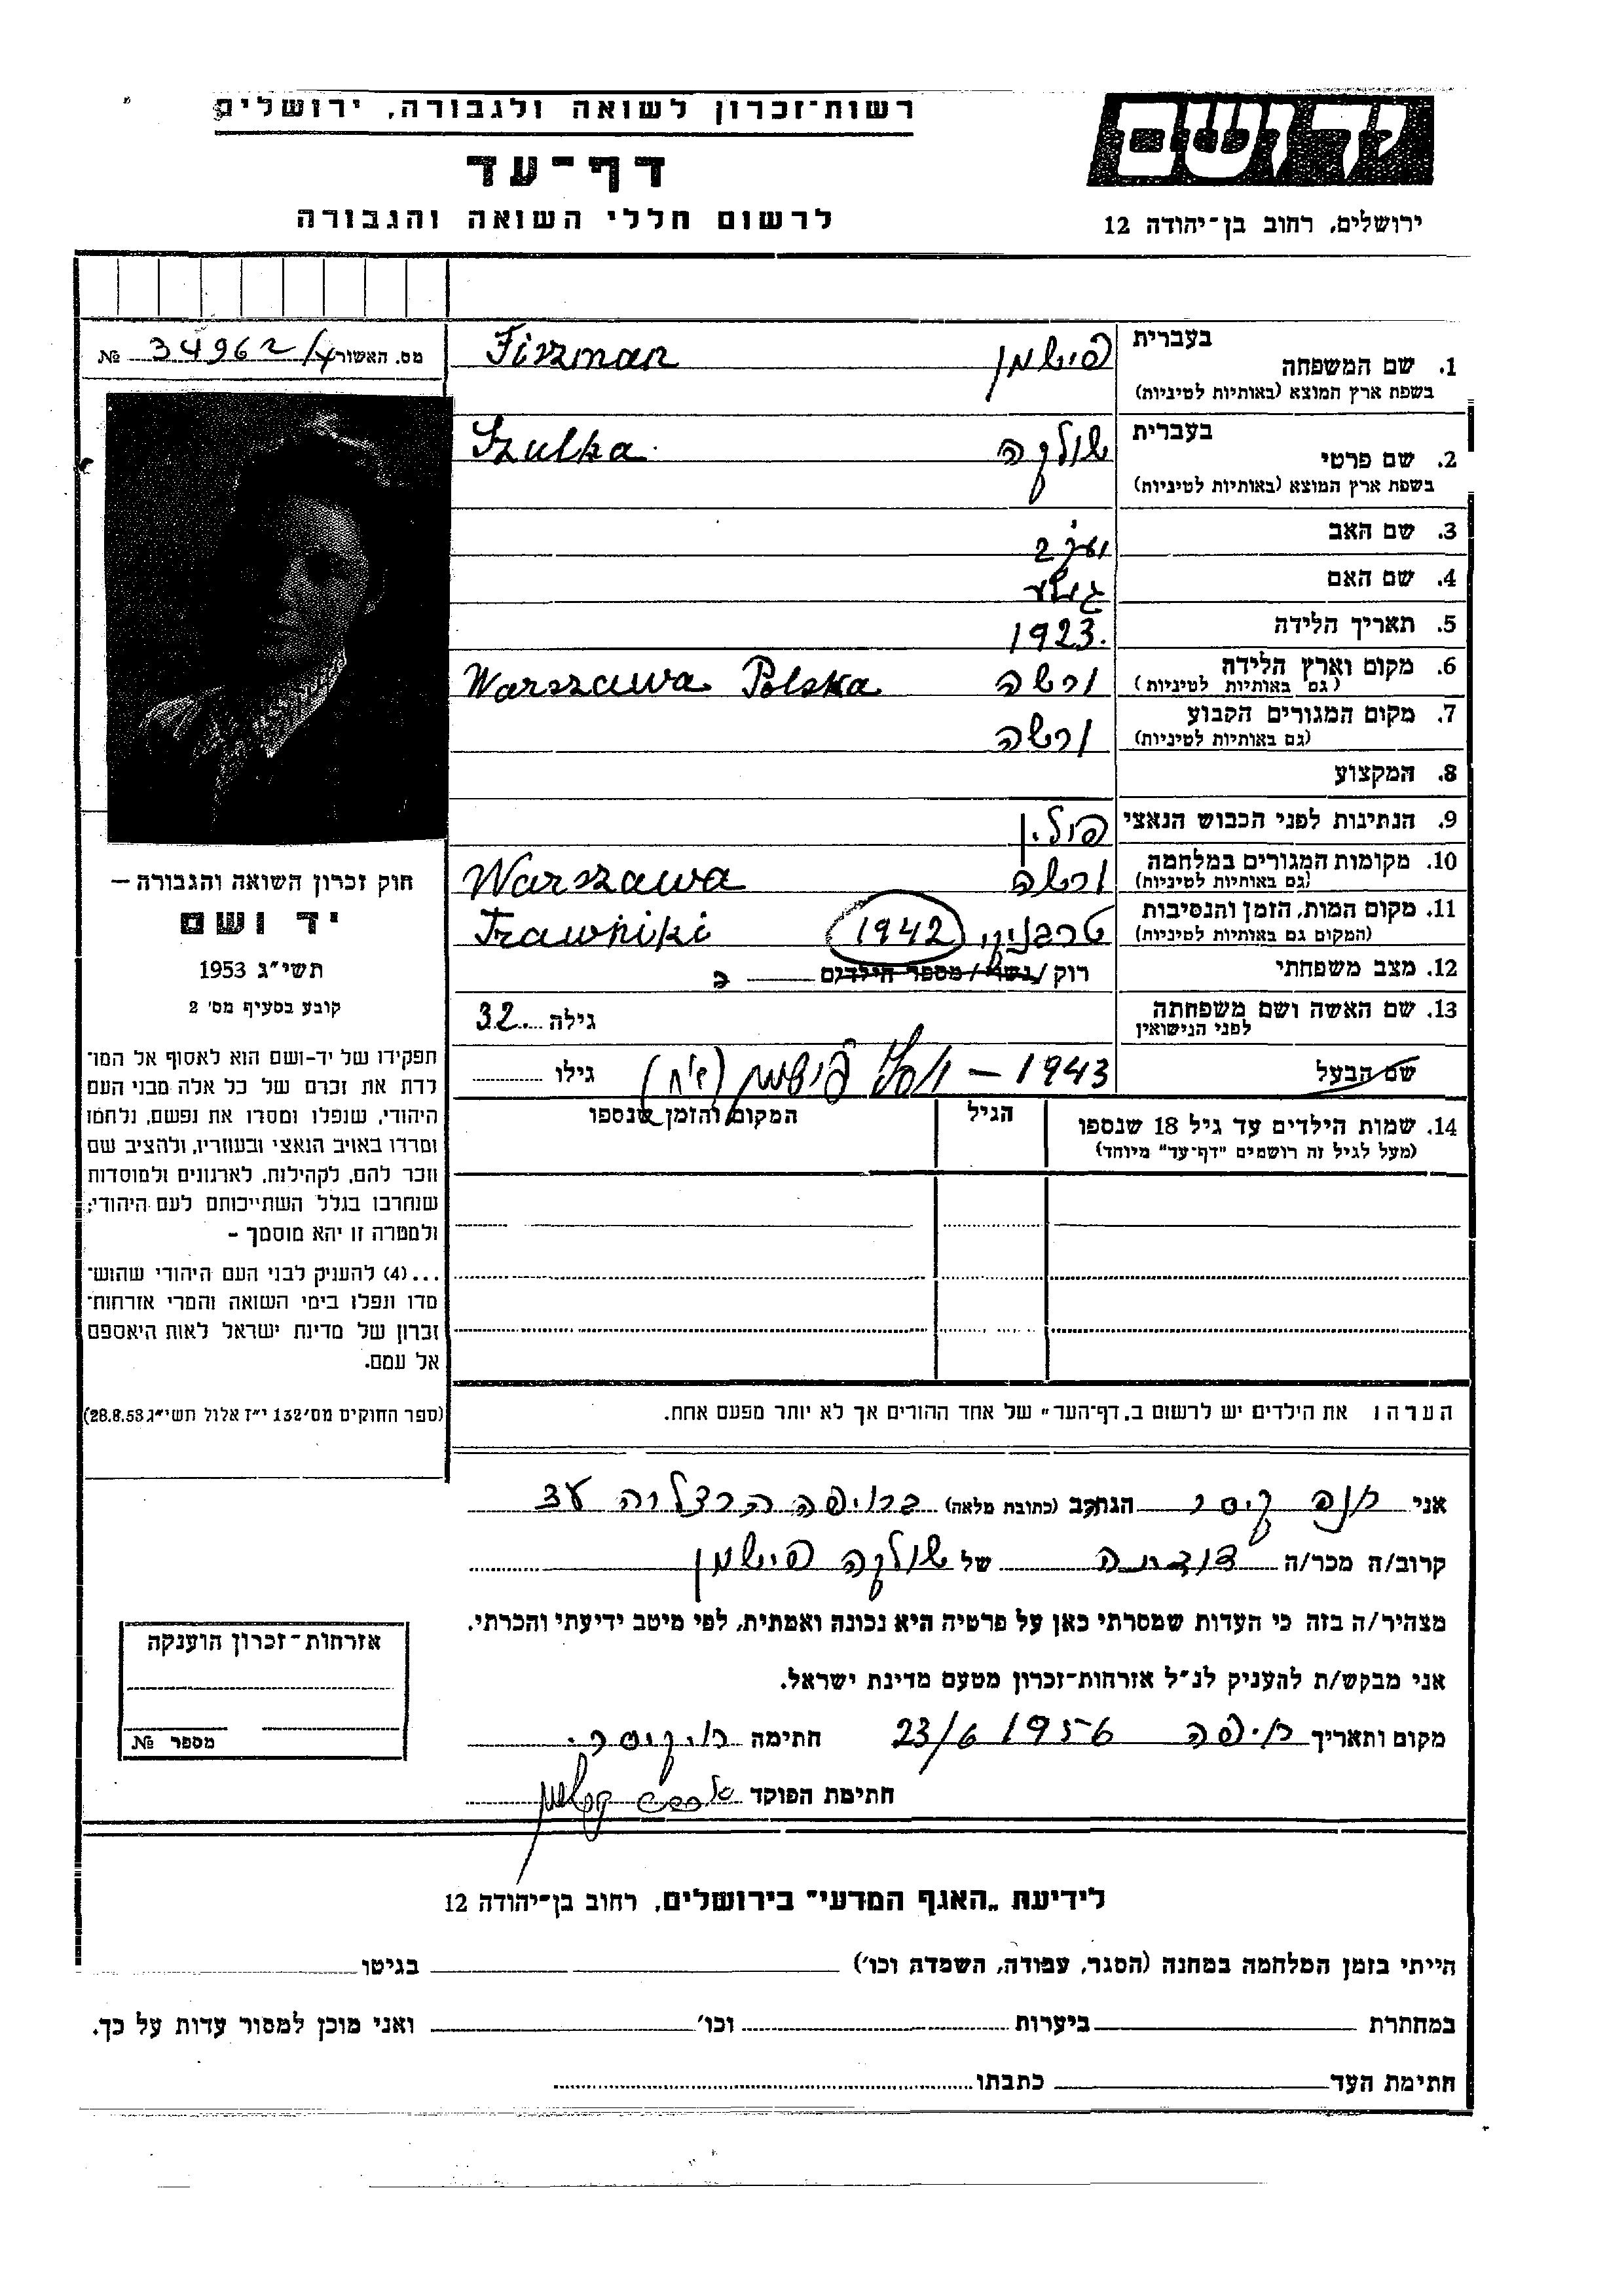 רשות־זכרון לשואה ולגבורה, ירושלים
דף־עד
לרשום חללי השואה והגבורה
יד ושם
ירושלים, רחוב בן־יהודה 12
מס. האשור 34962/4 №
בעברית
1. שם המשפחה פישמן Fiszman
בשפת ארץ המוצא (באותיות לטיניות)
בעברית
2. שם פרטי שולקה Szulka
בשפת ארץ המוצא (באותיות לטיניות)
3. שם האב
4. שם האם
5. תאריך הלידה 1923.
6. מקום וארץ הלידה ורשה Warszawa Polska
(גם באותיות לטיניות)
7. מקום המגורים הקבוע ורשה
(גם באותיות לטיניות)
8. המקצוע
9. הנתינות לפני הכבוש הנאצי פולין
10. מקומות המגורים במלחמה ורשה Warszawa
(גם באותיות לטיניות)
11. מקום המות, הזמן והנסיבות טרבניקי 1942 Trawniki
(המקום גם באותיות לטיניות)
12. מצב משפחתי רוק / נשוי / מספר הילדים
13. שם האשה ושם משפחתה גילה 32
לפני הנישואין
שם הבעל 1943 – פישמן גילו
14. שמות הילדים עד גיל 18 שנספו הגיל המקום והזמן שנספו
(מעל לגיל זה רושמים "דף־עד" מיוחד)
הערה: את הילדים יש לרשום ב„דף־העד" של אחד ההורים אך לא יותר מפעם אחת.
חוק זכרון השואה והגבורה —
יד ושם
תשי״ג 1953
קובע בסעיף מס׳ 2
תפקידו של יד־ושם הוא לאסוף אל המו־
לדת את זכרם של כל אלה מבני העם
היהודי, שנפלו ומסרו את נפשם, נלחמו
ומרדו באויב הנאצי ובעוזריו, ולהציב שם
וזכר להם, לקהילות, לארגונים ולמוסדות
שנחרבו בגלל השתייכותם לעם היהודי;
ולמטרה זו יהא מוסמך –
...(4) להעניק לבני העם היהודי שהוש־
מדו ונפלו בימי השואה והמרי אזרחות־
זכרון של מדינת ישראל לאות היאספם
אל עמם.
(ספר החוקים מס׳ 132 י״ז אלול תשי״ג 28.8.53)
אני חנה קיסר הגר/ב (כתובת מלאה) בחיפה הרצליה
קרוב/ה מכר/ה דודתה של שולקה פישמן
מצהיר/ה בזה כי העדות שמסרתי כאן על פרטיה היא נכונה ואמתית, לפי מיטב ידיעתי והכרתי.
אני מבקש/ת להעניק לנ״ל אזרחות־זכרון מטעם מדינת ישראל.
מקום ותאריך חיפה 23/6 1956 חתימה ח. קיסר.
חתימת הפוקד
אזרחות־זכרון הוענקה
מספר №
לידיעת „האגף המדעי" בירושלים, רחוב בן־יהודה 12
הייתי בזמן המלחמה במחנה (הסגר, עבודה, השמדה וכו׳) בגיטו
במחתרת ביערות וכו׳ ואני מוכן למסור עדות על כך.
חתימת העד כתבתו